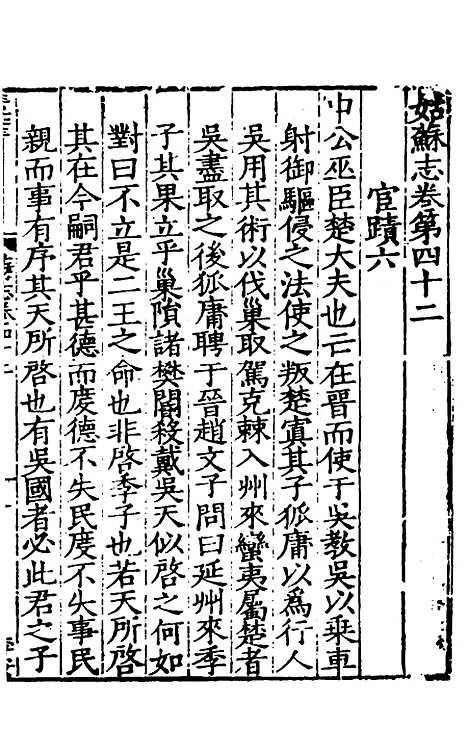 姑蘇志卷第四十二
官蹟六
申公巫臣楚大夫也亡在晉而使于吳教吳以乘車
射御驅侵之法使之叛楚寘其子狐庸以爲行人
吳用其術以伐巢取駕克棘入州來蠻夷屬楚者
吳盡取之後狐庸聘于晉趙文子問曰延州來季
子其果立乎巢隕諸樊閽殺戴吳天似啓之何如
對曰不立是二王之命也非啓季子也若天所啓
其在今嗣君乎甚德而度德不失民度不失事民
親而事有序其天所啓也有吳國者必此君之子